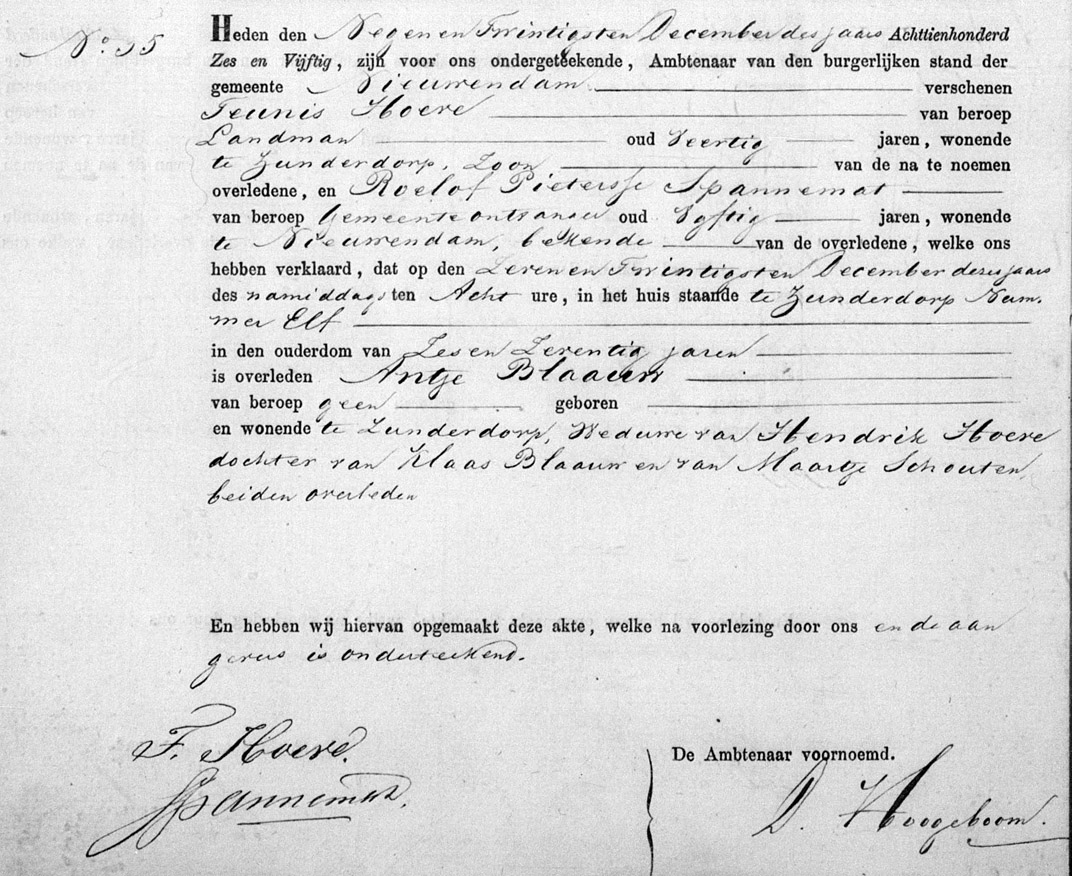 No 35
Heden den Negen en Twintigsten December des jaars Achttienhonderd
Zes en Vijftig, zijn voor ons ondergeteekende, Ambtenaar van den burgerlijken stand der
gemeente Nieuwendam verschenen
Teunis Hoeve van beroep
Landman oud Veertig jaren, wonende
te Zunderdorp, Zoon van de na te noemen
overledene, en Roelof Pietersse Spannemat
van beroep Gemeente ontvanger oud Vyftig jaren, wonende
te Nieuwendam, bekende van de overledene, welke ons
hebben verklaard, dat op den Zeven en Twintigsten December dezes jaars
des namiddags ten Acht ure, in het huis staande te Zunderdorp Num-
mer Elf
in den ouderdom van Zes en Zeventig jaren
is overleden Antje Blaauw
van beroep geen geboren
en wonende te Zunderdorp, Weduwe van Hendrik Hoeve
dochter van Klaas Blaauw en van Maartje Schouten,
beiden overleden
En hebben wij hiervan opgemaakt deze akte, welke na voorlezing door ons en de aan
gevers is onderteekend.
T. Hoeve.
Spannemat.
De Ambtenaar voornoemd.
D. Hoogeboom.